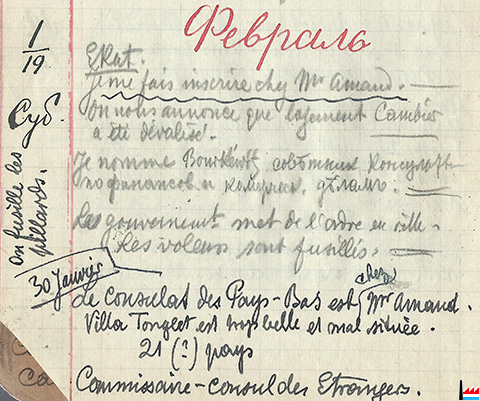 Февраль
1/19
Суб.
On fusille les pillards.
Ekat.
Je me fais inscrire chez Mr Amand.
On nous annonce que logement Cambier
a été dévalisé.
Je nomme совѣтник
по финансов и комерч. дѣламъ.
Les gouvernemt met de l'ordre en ville.
(Les voleurs sont fusillés.
30 Janvier
Le Consulat des Pays-Bas est chez Mr Amand.
Villa Tonglet est trop belle et mal située.
21 (?) pays
Commissaire-consul des Etrangers.